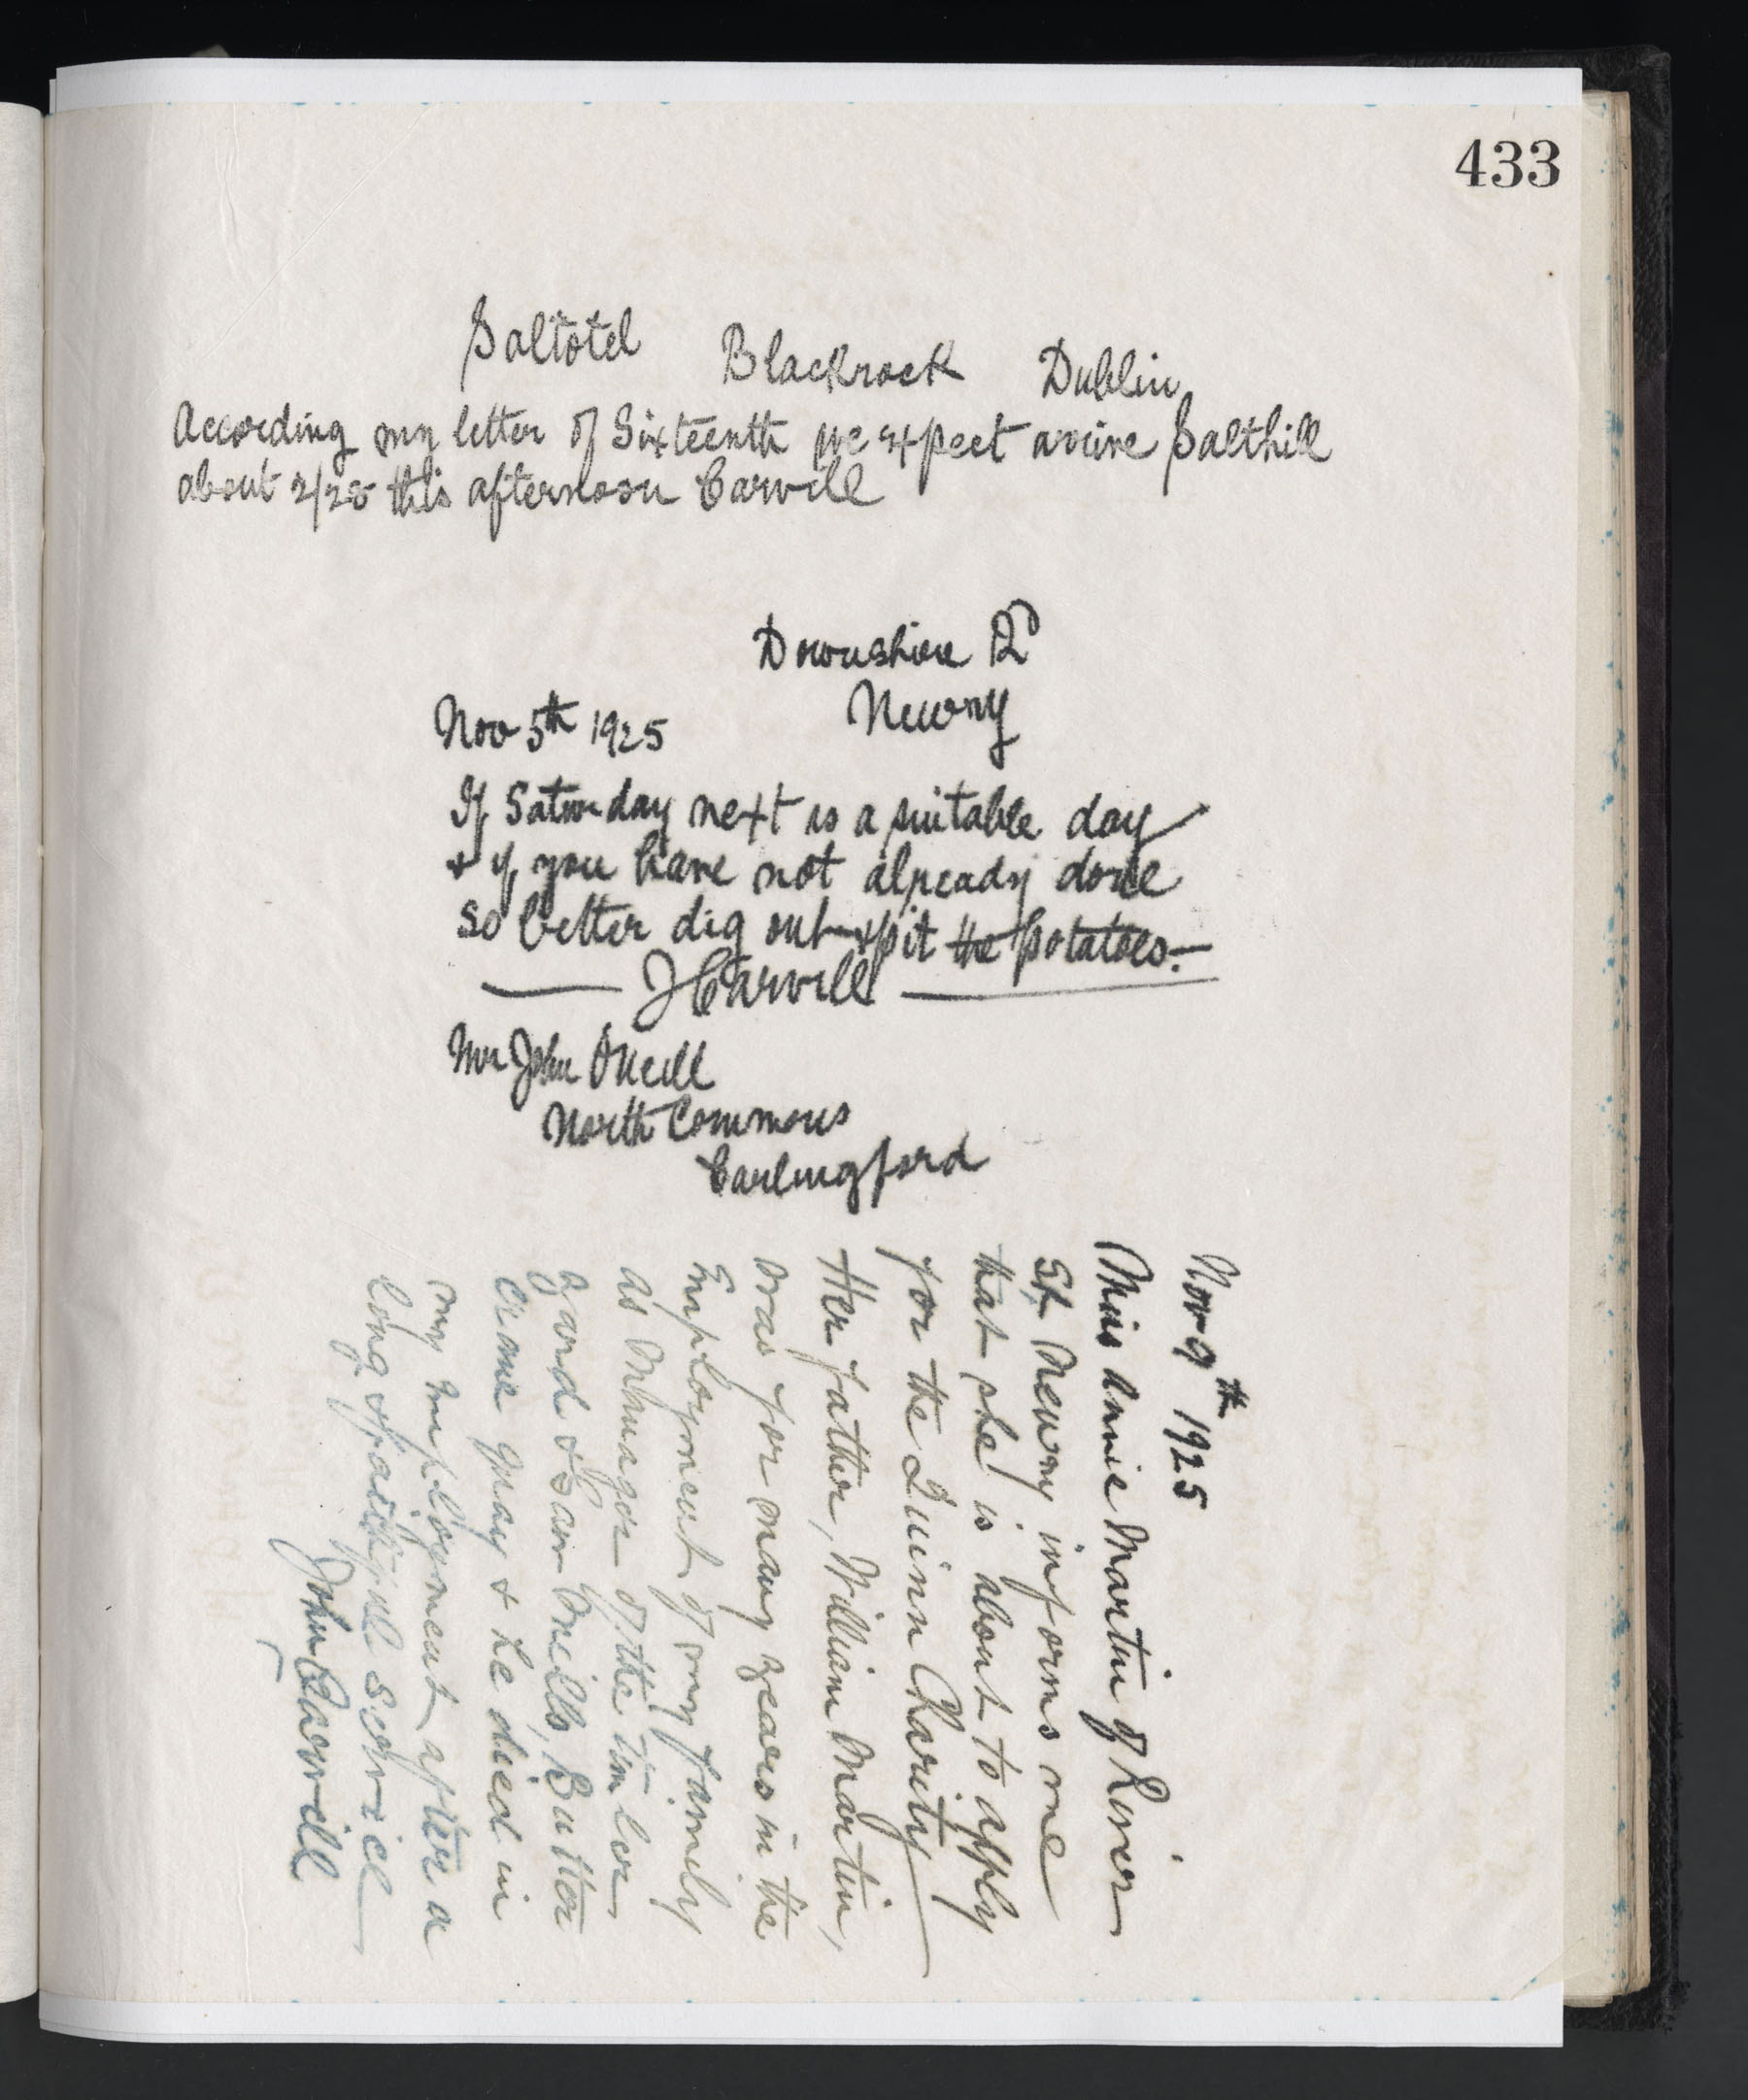 433
Saltotel Blackrock Dublin
According my letter of Sixteenth we expect arrive Salthill
about 2/28 this afternoon Carvill
Downshire Rd
Newry
Nov 5th 1925
If Saturday next is a suitable day
& if you have not already done
so better dig out & pit the potatoes.—
J Carvill
Mr John O'Neill
North Commons
Carlingford
Nov 9th 1925
Miss Annie Martin of River
St Newry informs me
that she is about to apply
for the Quinn Charity
Her father, William Martin,
was for many years in the
Employment of my family
as Manager of the timber
yard & Saw Mills, Butter
Crane Quay & he died in
my employment after a
long & faithful service
John Carvill